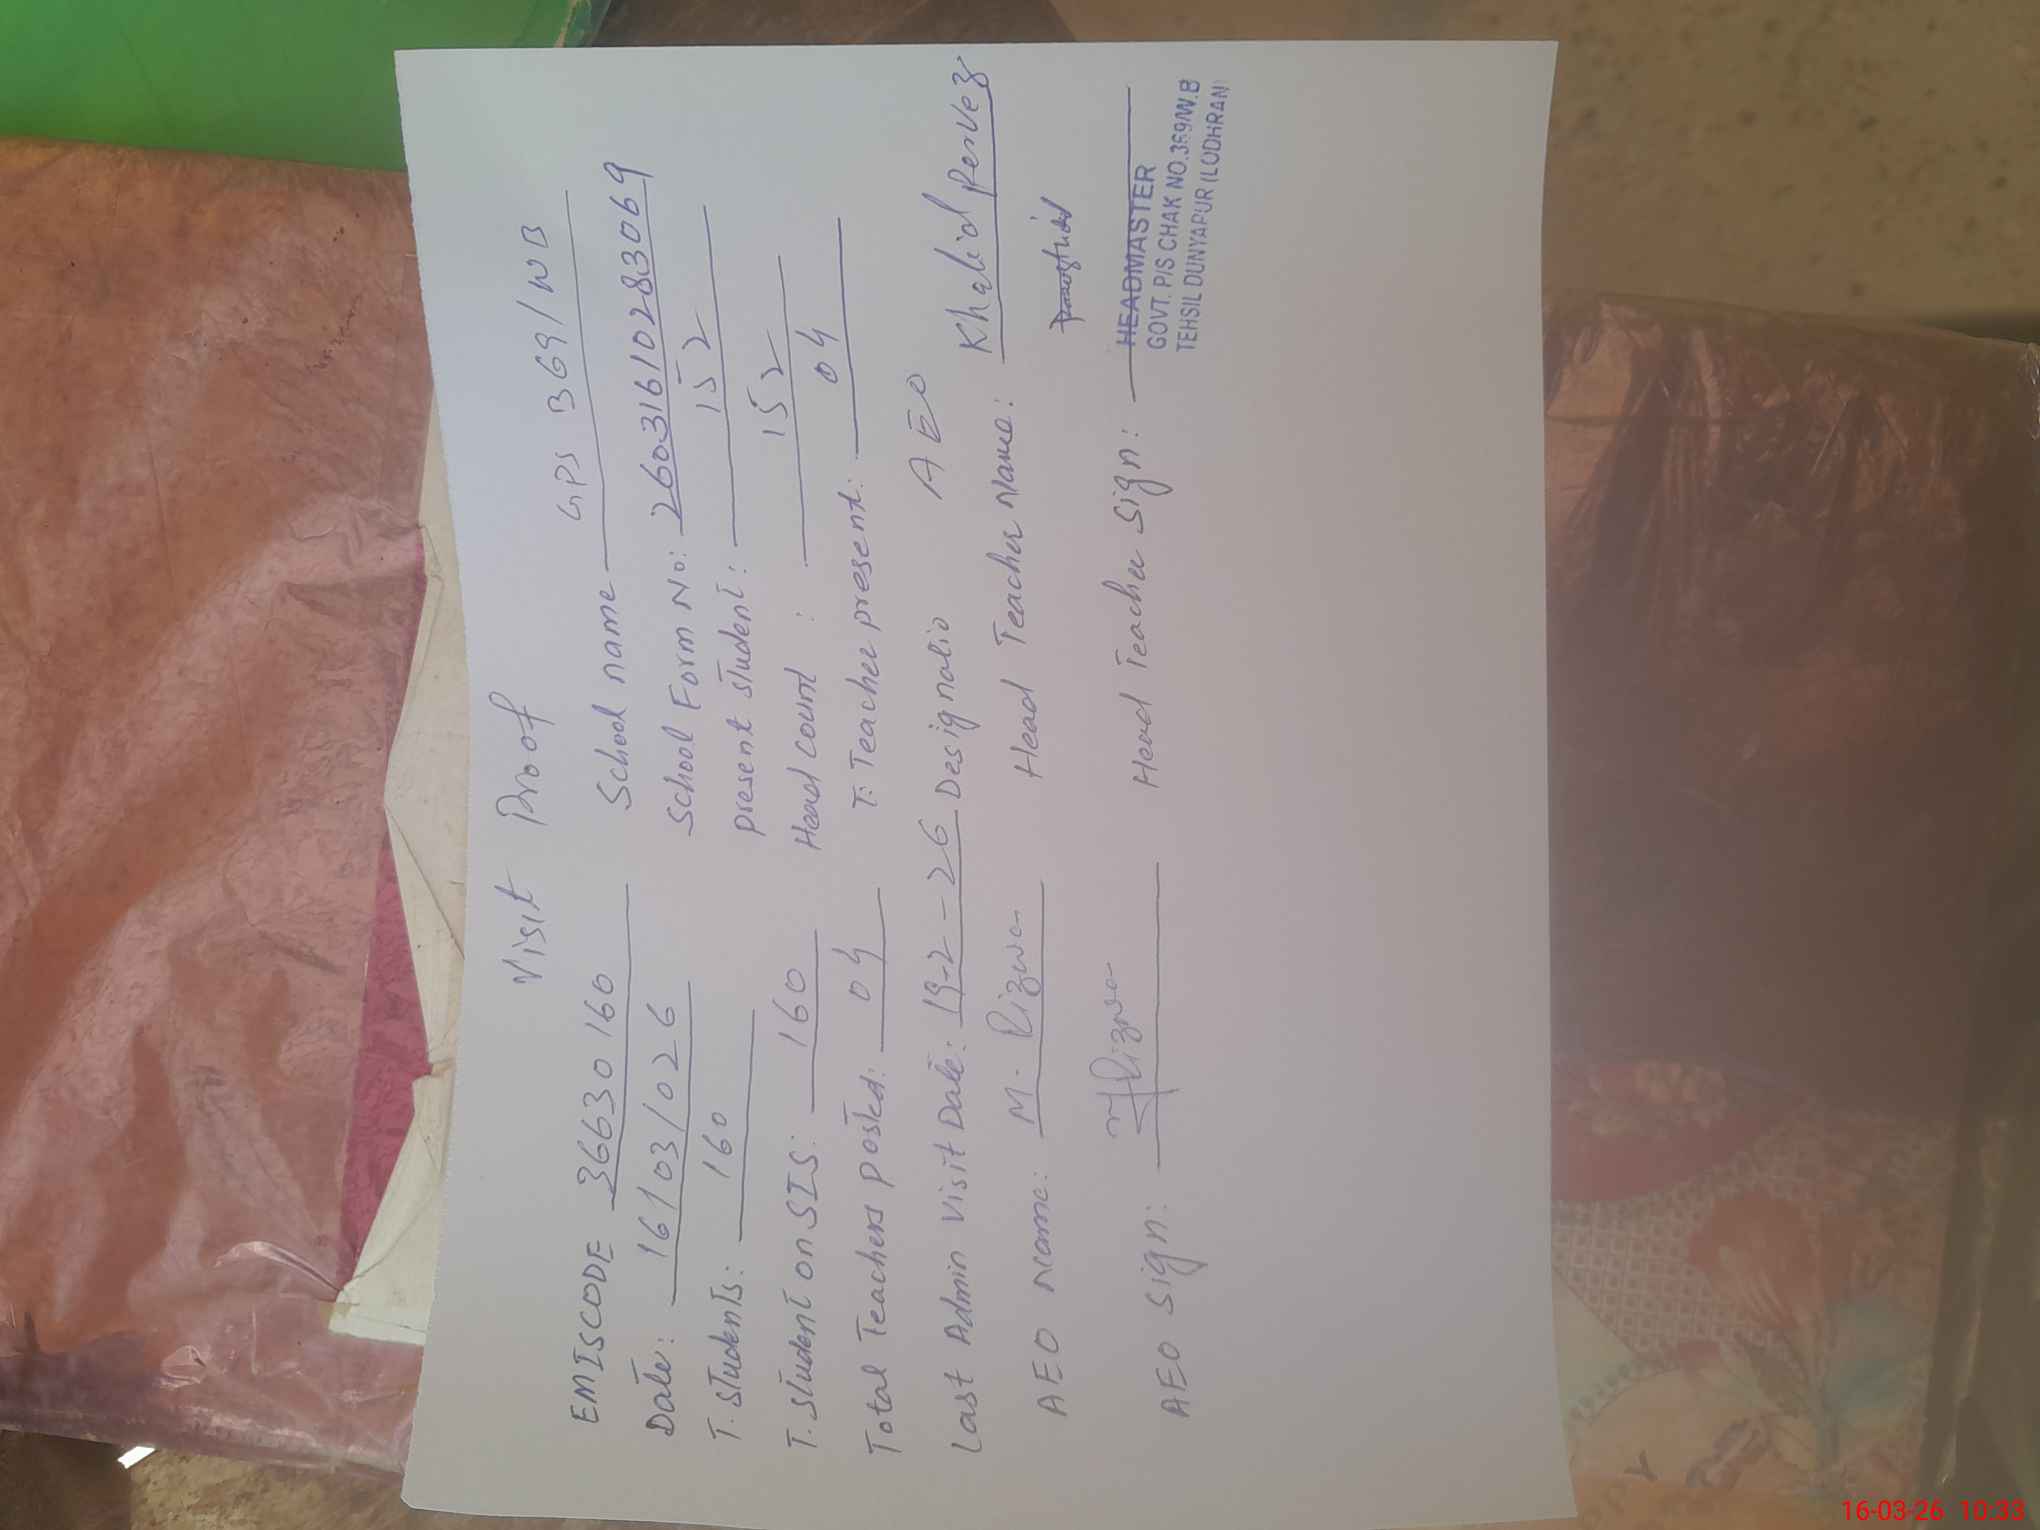 Visit Proof
EMISCODE 36630160 School name GPS 369/WB
Date: 16/03/026 School Form No: 26031610283069
T. students: 160 present student: 152
T. student on SIS: 160 Head count : 152
Total Teachers posted: 04 T. Teacher present: 04
Last Admin Visit Date: 19-2-26 Designatio AEO
AEO name: M. Rizwan Head Teacher Name: Khalid Pervez
AEO sign: Rizwan Head Teacher Sign:
HEADMASTER
GOVT. P/S CHAK NO.369/W.B
TEHSIL DUNYAPUR (LODHRAN)
16-03-26 10:33